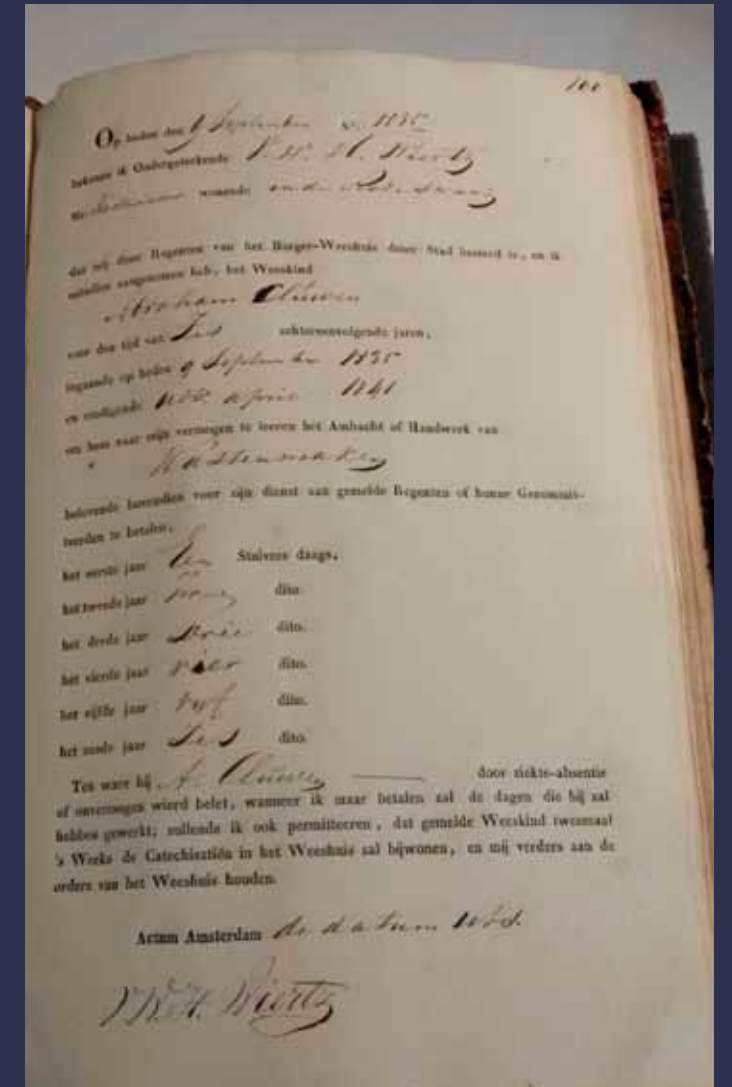 100
Op heden den 9 September 1835
bekenne ik Ondergeteekende W. H. Wiertz
Mr. wonende in de
dat mij door Regenten van het Burger-Weeshuis dezer Stad besteed is, en ik
aangenomen heb, het Weeskind
Abraham Clüwen
voor den tijd van Zes achtereenvolgende jaren,
ingaande op heden 9 September 1835
en eindigende april 1841
om hem naar mijn vermogen te leeren het Ambacht of Handwerk van
Kastenmaken
belovende bovendien voor zijn dienst aan gemelde Regenten of hunne Gecommit-
teerden te betalen,
het eerste jaar Een Stuivers daags.
het tweede jaar twee dito.
het derde jaar drie dito.
het vierde jaar vier dito.
het vijfde jaar vyf dito.
het zesde jaar Zes dito.
Ten ware hij A. Clüwen door ziekte-absentie
of onvermogen wierd belet, wanneer ik maar betalen zal de dagen die hij zal
hebben gewerkt; zullende ik ook permitteeren, dat gemelde Weeskind tweemaal
's Weeks de Catechisatiën in het Weeshuis zal bijwonen, en mij verders aan de
orders van het Weeshuis houden.
Actum Amsterdam de datum
W. H. Wiertz